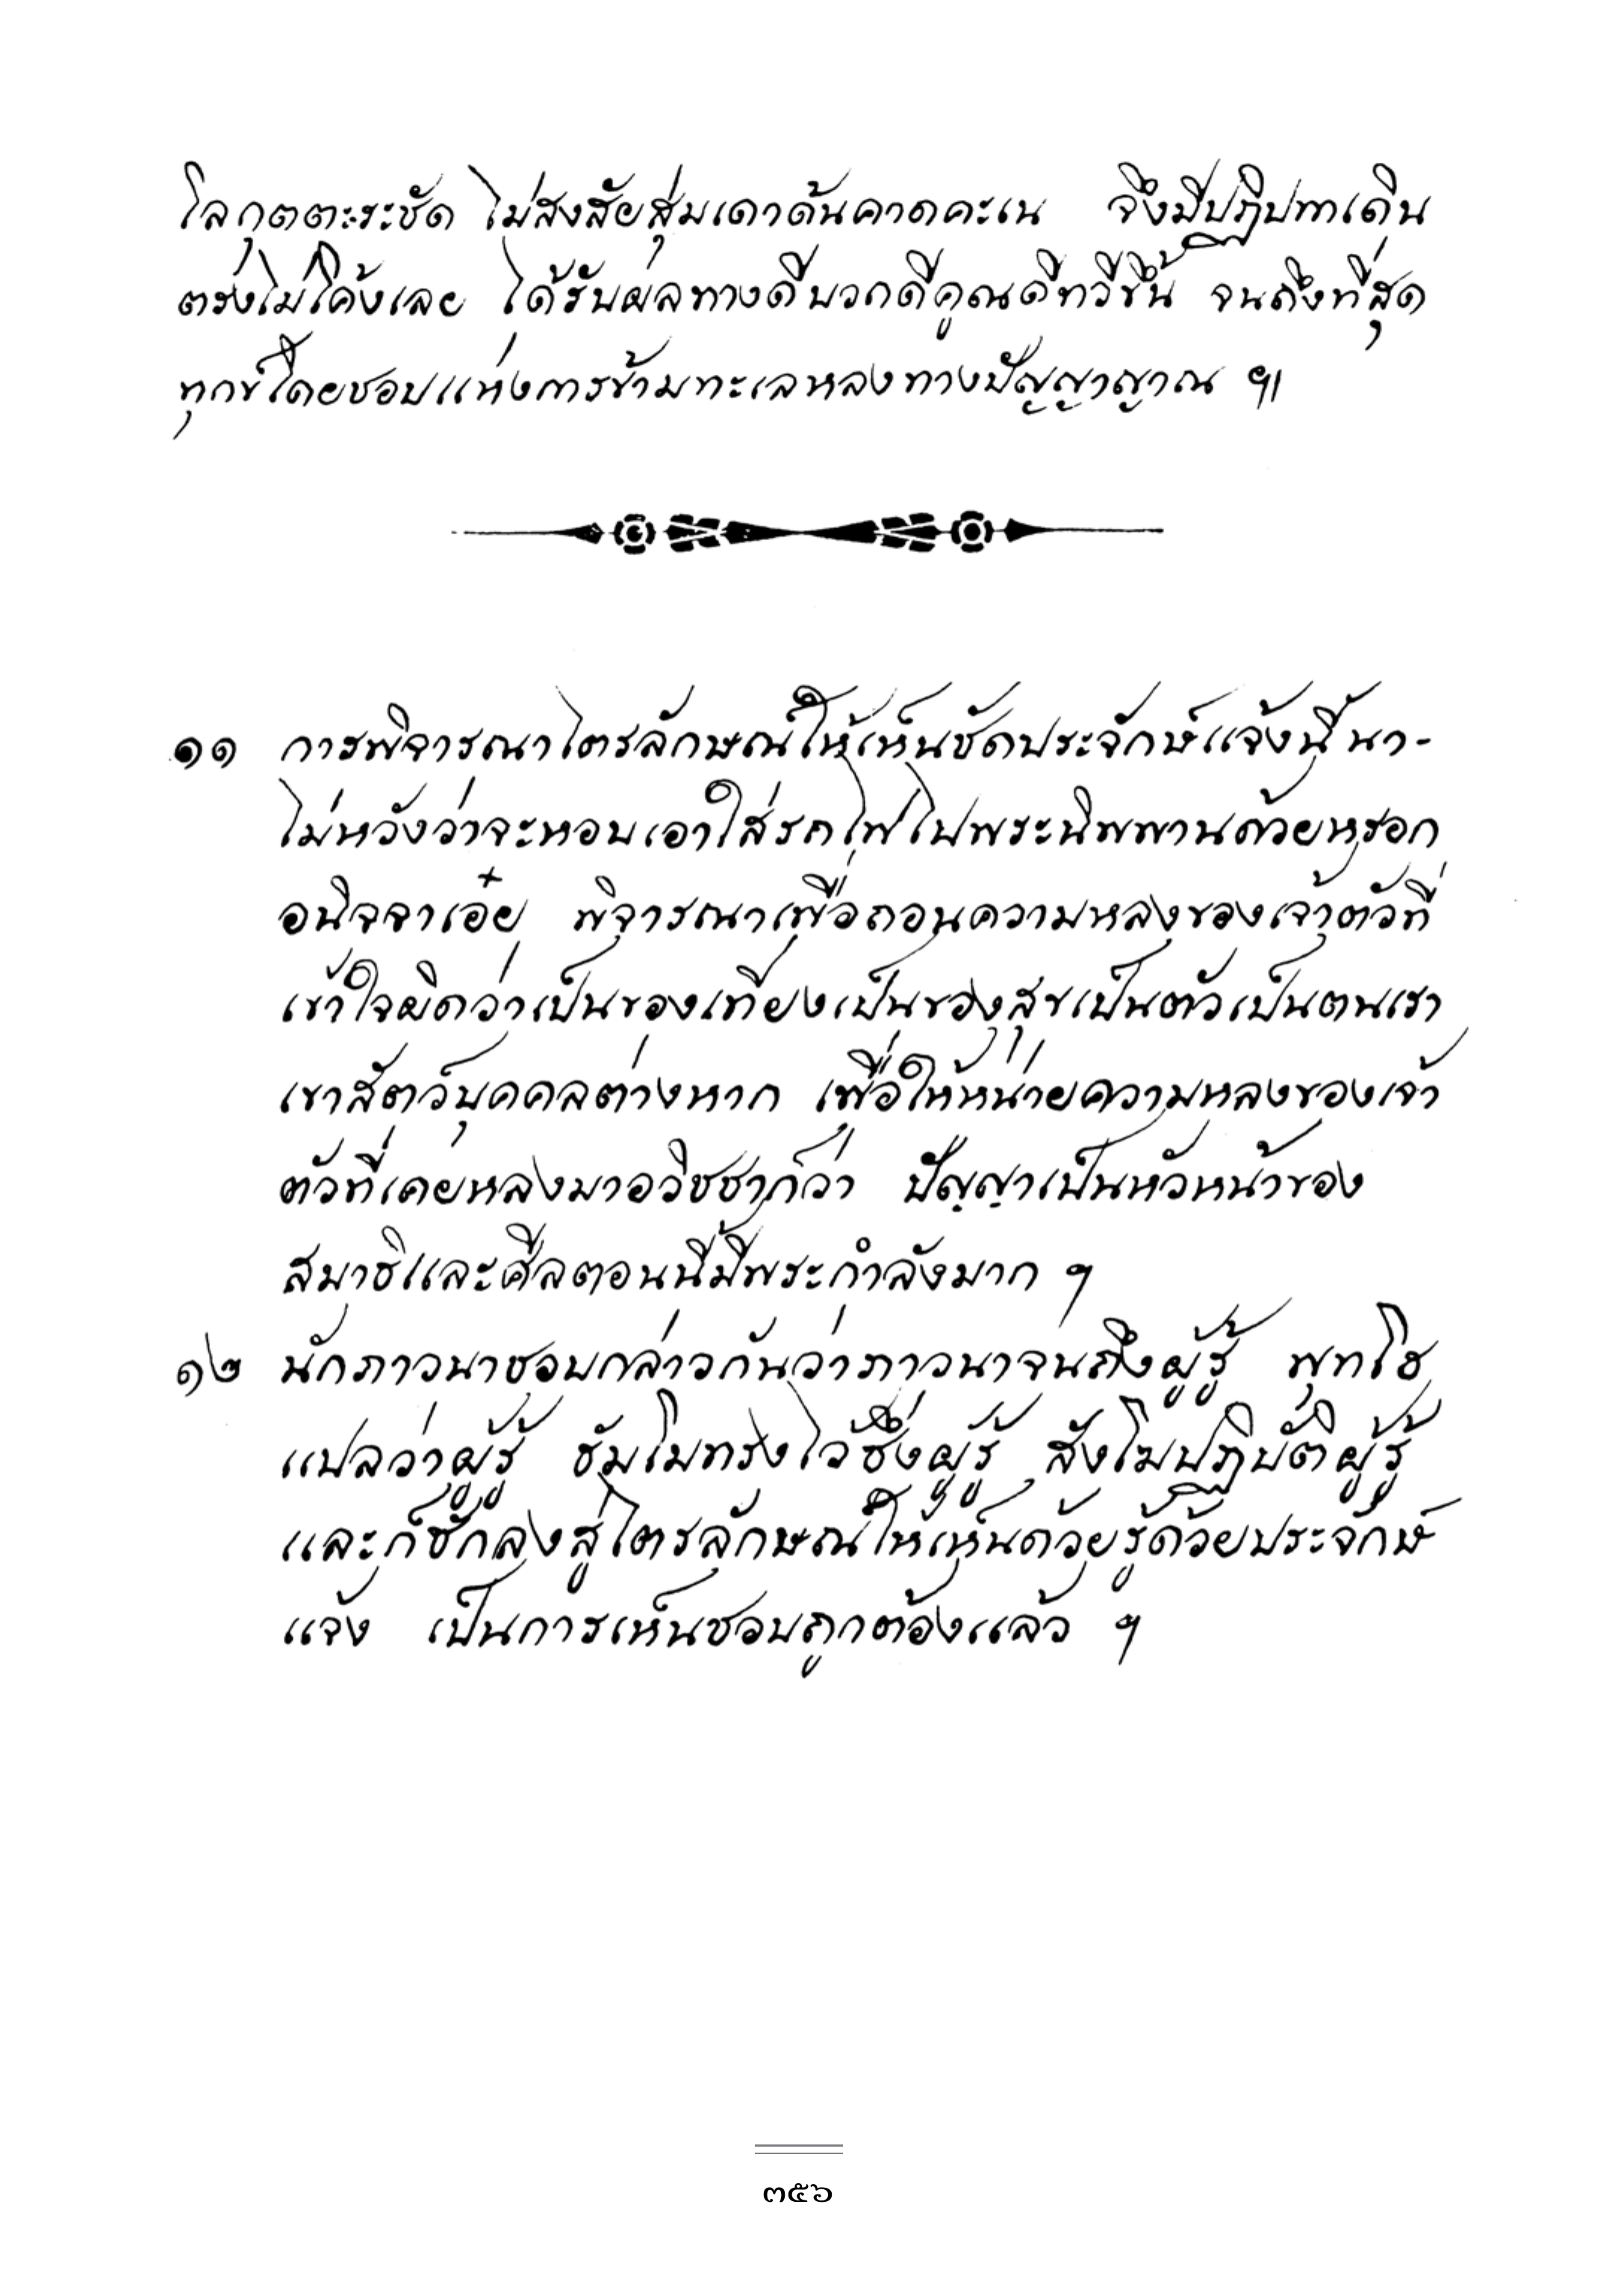 โลกุตตะระชัด ไม่สงสัยสุ่มเดาด้นคาดคะเน จึงมีปฏิปทาเดิน
ตรงไม่โค้งเลย ได้รับผลทางดีบวกดีคูณดีทวีขึ้น จนถึงที่สุด
ทุกข์โดยชอบแห่งการข้ามทะเลหลงทางปัญญาญาณ ฯ
๑๑ การพิจารณาไตรลักษณ์ให้เห็นชัดประจักษ์แจ้งนี้ นา-
ไม่หวังว่าจะหอบเอาใส่รถไฟไปพระนิพพานด้วยหรอก
อนิจจาเอ๋ย พิจารณาเพื่อถอนความหลงของเจ้าตัวที่
เข้าใจผิดว่าเป็นของเที่ยงเป็นของสุขเป็นตัวเป็นตนเรา
เขาสัตว์บุคคลต่างหาก เพื่อให้หน่ายความหลงของเจ้า
ตัวที่เคยหลงมาอวิชชาก็ว่า ปัญญาเป็นหัวหน้าของ
สมาธิและศีลตอนนี้มีพระกำลังมาก ฯ
๑๒ นักภาวนาชอบกล่าวกันว่าภาวนาจนถึงผู้รู้ พุทโธ
แปลว่าผู้รู้ ธัมโมทรงไว้ซึ่งผู้รู้ สังโฆปฏิบัติผู้รู้
และก็ชักลงสู่ไตรลักษณ์ให้เห็นด้วยรู้ด้วยประจักษ์
แจ้ง เป็นการเห็นชอบถูกต้องแล้ว ฯ
๓๕๖